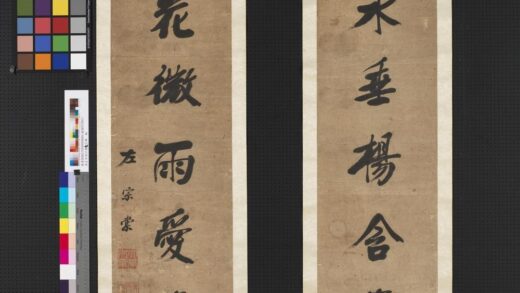 水垂楊含
花微雨愛
左宗棠